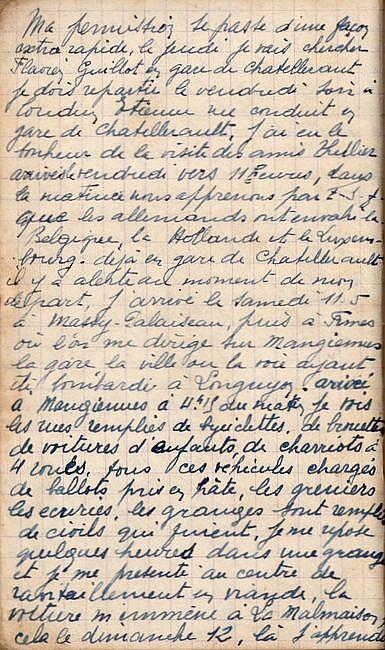 Ma permission se passe d'une façon
extra rapide, le jeudi je vais chercher
Flavien Guillot en gare de Chatellerault
je dois repartir le vendredi soir à
Loudun Etienne me conduit en
gare de Chatellerault, j'ai eu le
bonheur de la visite des amis Hellier
arrivés vendredi vers 11 heures, dans
la matinée nous apprenons par T.S.F.
que les allemands ont envahi la
Belgique, la Hollande et le Luxem-
bourg. déjà en gare de Chatellerault
il y a alerte au moment de mon
départ. J'arrive le samedi 11.5
à Massy-Palaiseau, puis à Fismes
où l'on me dirige sur Mangiennes
la gare, la ville ou la voie ayant
été bombardé à Longuyon, arrivé
à Mangiennes à 4h15 du matin je vois
les rues remplies de byciclettes, de brouettes
de voitures d'enfants, de charriots à
4 roues. tous ces véhicules chargés
de ballots pris en hâte, les greniers
les écuries, les granges sont remplis
de civils qui fuient, je me repose
quelques heures dans une grange
et je me présente au centre de
ravitaillement en viande, la
voiture m'emmène à La Malmaison
cela le dimanche 12, là j'apprends